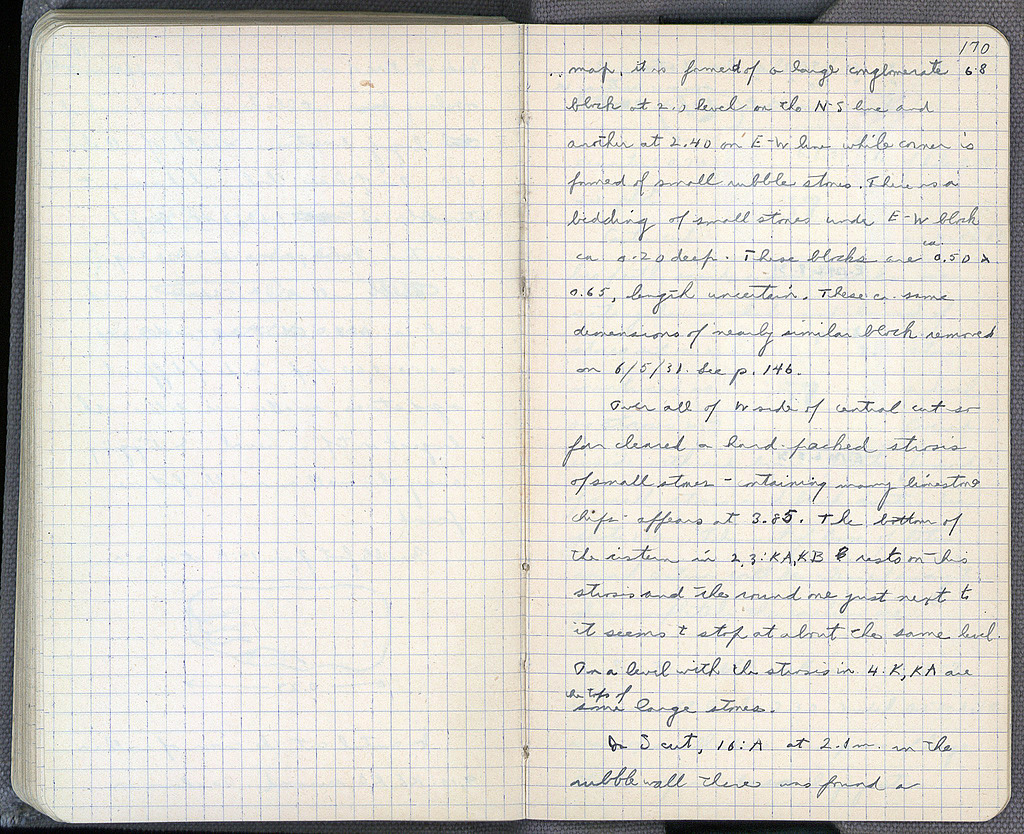 170
map, it is formed of a large conglomerate 68
block at 2., level on the N-S line and
another at 2.40 on E-W line while corner is
formed of small rubble stones. There is a
bedding of small stones under E-W block
ca 0.20 deep. These blocks are ca. 0.50 x
0.65, length uncertain. These ca same
demensions of nearly similar block removed
on 6/5/31. See p. 146.
Over all of W side of central cut so
far cleared a hard-packed strosis
of small stones - containing many limestone
chips appears at 3.85. The bottom of
the cistern in 2,3:KA,KB rests on this
strosis and the round one just next to
it seems to stop at about the same level.
On a level with the strosis in 4:K,KA are
the tops of
some large stones.
In S cut, 16:A at 2.1m. in the
rubble wall there was found a